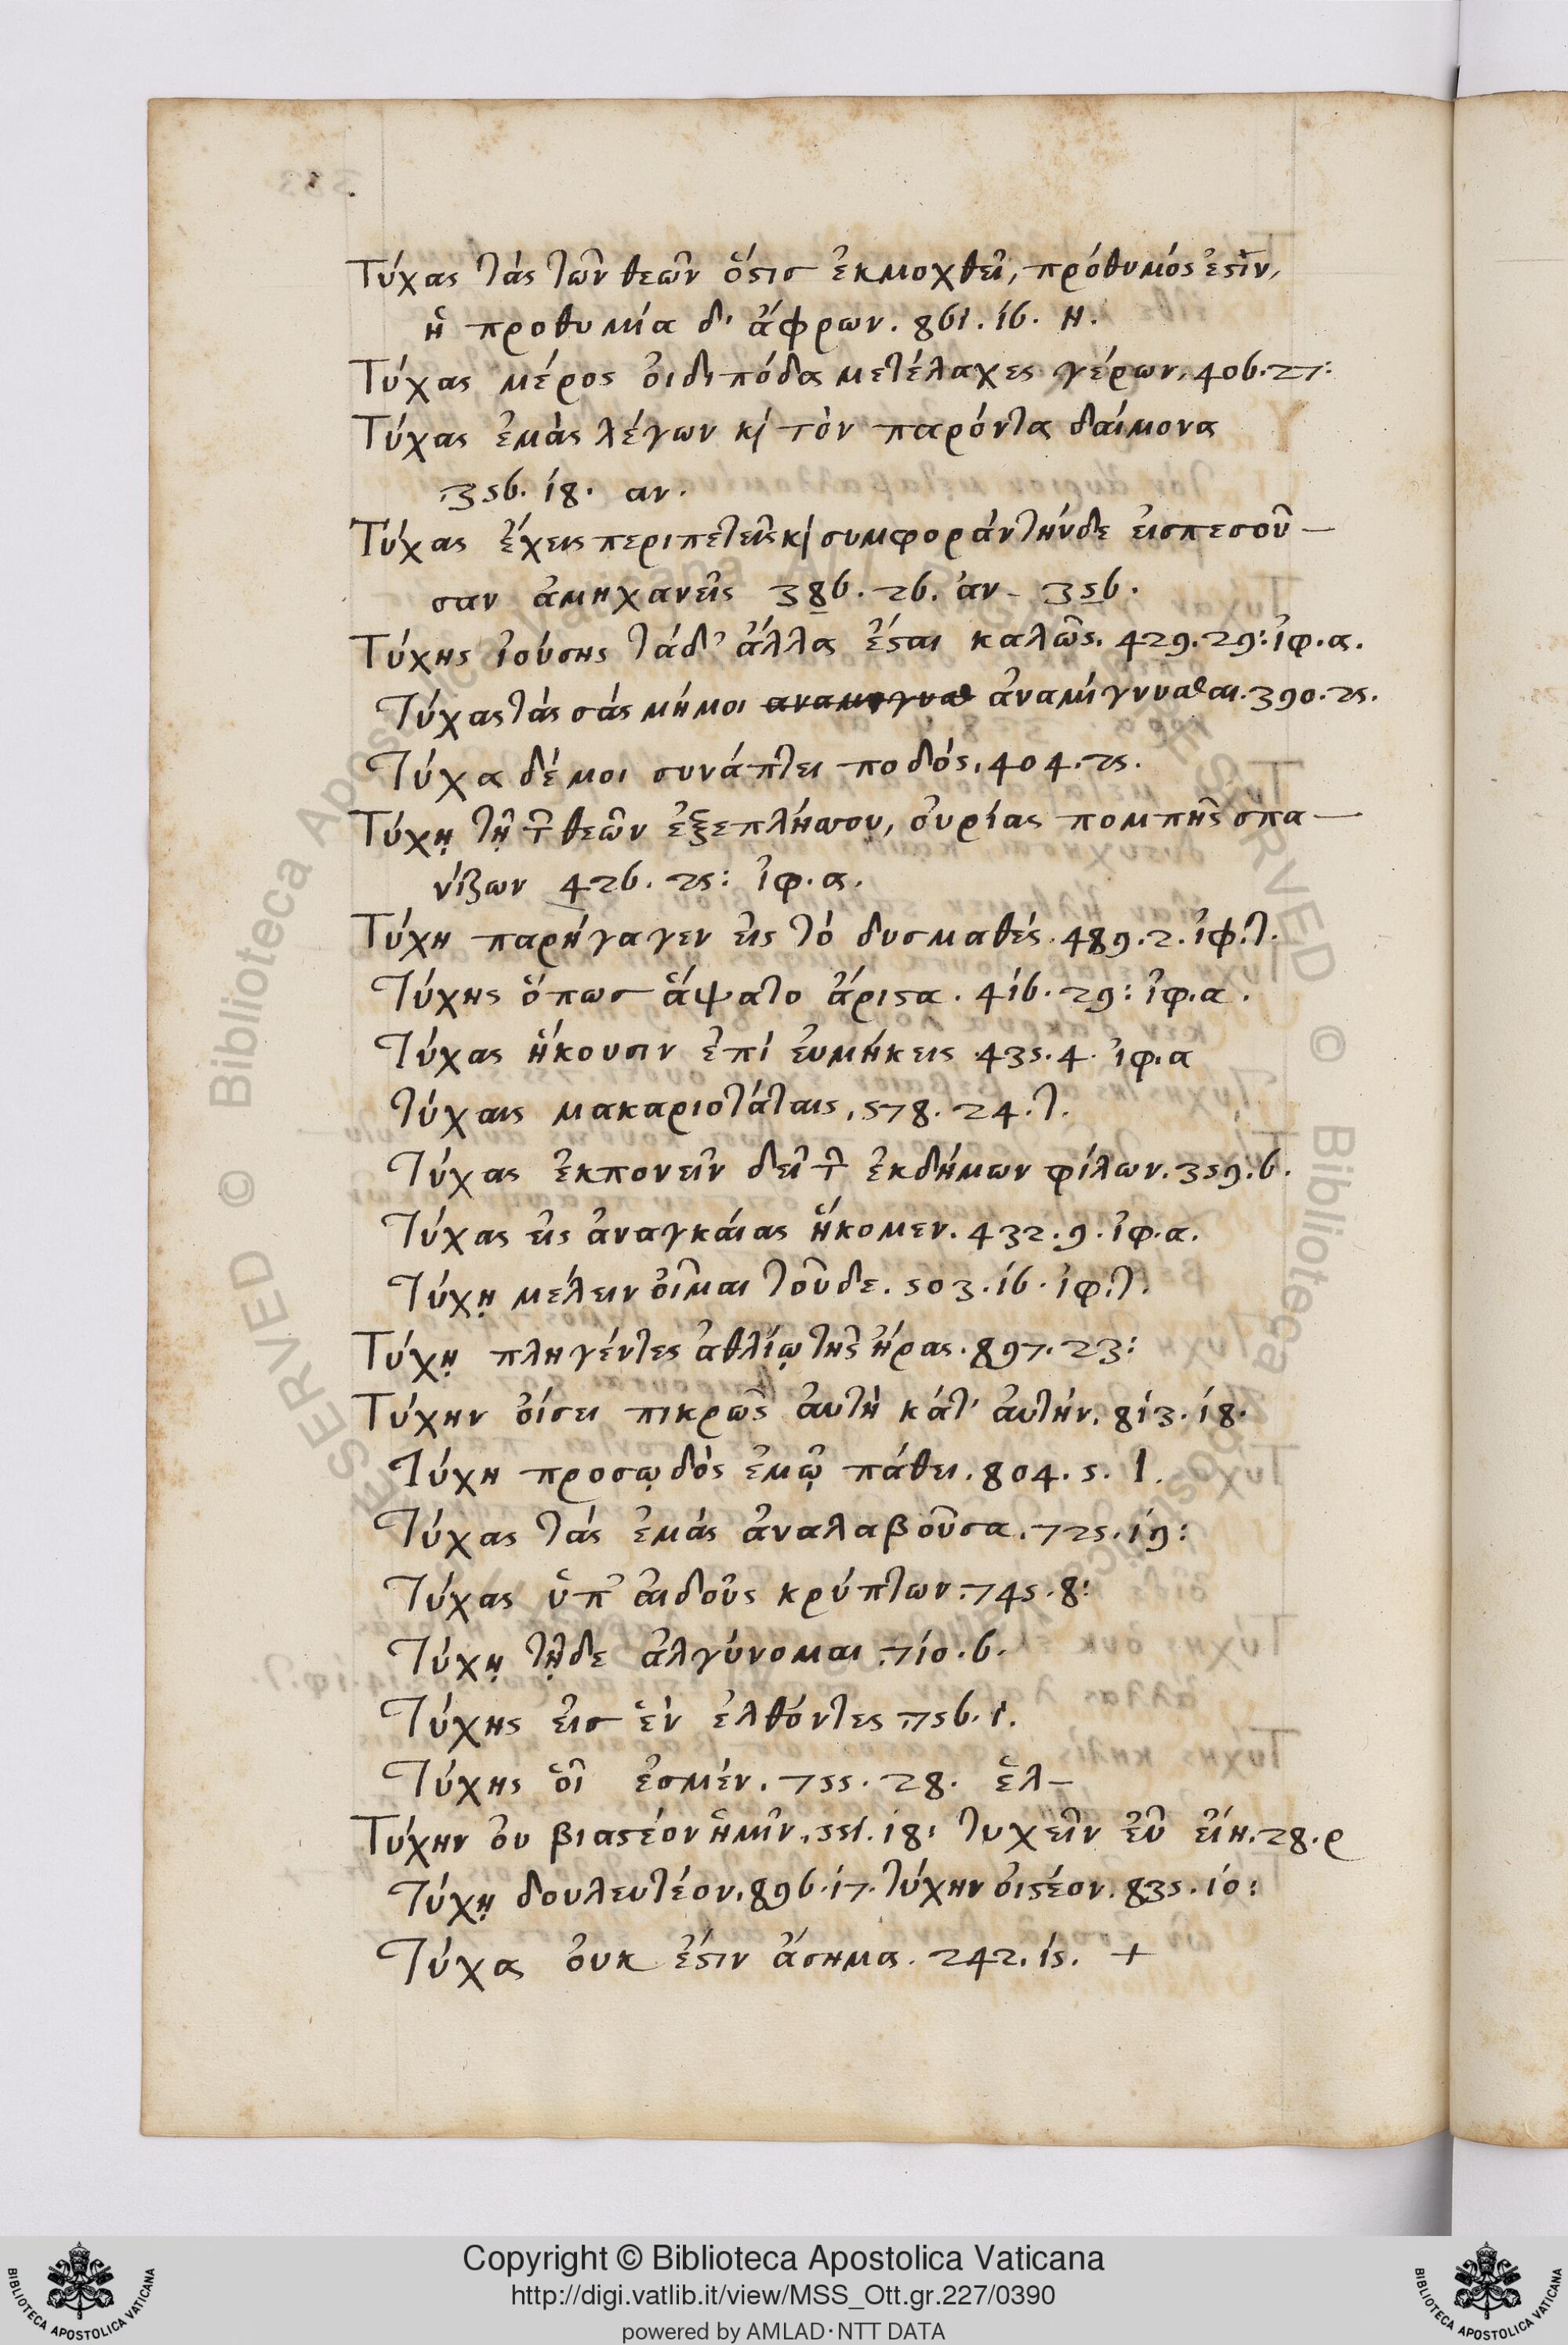 Τύχας τὰς τῶν θεῶν ὅστις ἐκμοχθεῖ, πρόθυμός ἐστιν,
ἡ προθυμία δ' ἄφρων. 861. ί6. Η.
Τύχας μέρος οἰδιπόδα μετέλαχες γέρων. 406. 27:
Τύχας ἐμὰς λέγων κὶ τὸν παρόντα δαίμονα
356. ί8. αν.
Τύχας ἔχεις περιπετεῖς κὶ συμφορὰν τήνδε εἰσπεσοῦ—
σαν ἀμηχανεῖς 386. 26. ἀν— 356.
Τύχης ἰούσης τάδ' ἄλλα ἔσται καλῶς. 429. 29: ἰφ. α.
Τύχας τὰς σὰς μή μοι ἀναμίγνυσθαι. 390. 25.
Τύχα δέ μοι συνάπτει ποδός. 404. 25.
Τύχῃ τῇ τ̃ θεῶν ἐξεπλήσσου, οὐρίας πομπῆς σπα—
νίζων 426. 25: ἰφ. α.
Τύχη παρήγαγεν εἰς τὸ δυσμαθές. 489. 2. ἰφ. τ.
Τύχης ὅπως ἅψατο ἄριστα. 4ί6. 29: ἰφ. α.
Τύχας ἥκουσιν ἐπὶ εὐμήκεις 435. 4. ἰφ. α
τύχαις μακαριοτάταις, 578. 24. τ.
Τύχας ἐκπονεῖν δεῖ τ̃ ἐκδήμων φίλων. 359. 6.
Τύχας εἰς ἀναγκαίας ἥκομεν. 432. 9. ἰφ. α.
Τύχῃ μέλειν οἶμαι τοῦδε. 503. ί6. ἰφ. τ.
Τύχῃ πληγέντες ἀθλίῳ τῆς ἥρας. 897. 23:
Τύχην οἴσει πικρῶς αὐτὴ κάτ' αὐτήν. 8ί3. ί8.
Τύχη προσῳδὸς ἐμῷ πάθει. 804. 5. Ι.
Τύχας τὰς ἐμὰς ἀναλαβοῦσα. 725. ί9:
Τύχας ὑπ' αἰδοῦς κρύπτων. 745. 8:
Τύχῃ τῇδε ἀλγύνομαι. 7ίο. 6.
Τύχης εἰς ἓν ἐλθόντες 756. ί.
Τύχης οἷ ἐσμέν. 755. 28. ἑλ—
Τύχην οὐ βιαστέον ἡμῖν. 551. ί8: τυχεῖν εὖ εἴη. 28. ρ
Τύχῃ δουλευτέον. 896. ί7. τύχην οἰστέον. 835. ίο:
Τύχα οὐκ ἔστιν ἄσημα. 242. ί5. +
Copyright © Biblioteca Apostolica Vaticana
http://digi.vatlib.it/view/MSS_Ott.gr.227/0390
powered by AMLAD·NTT DATA